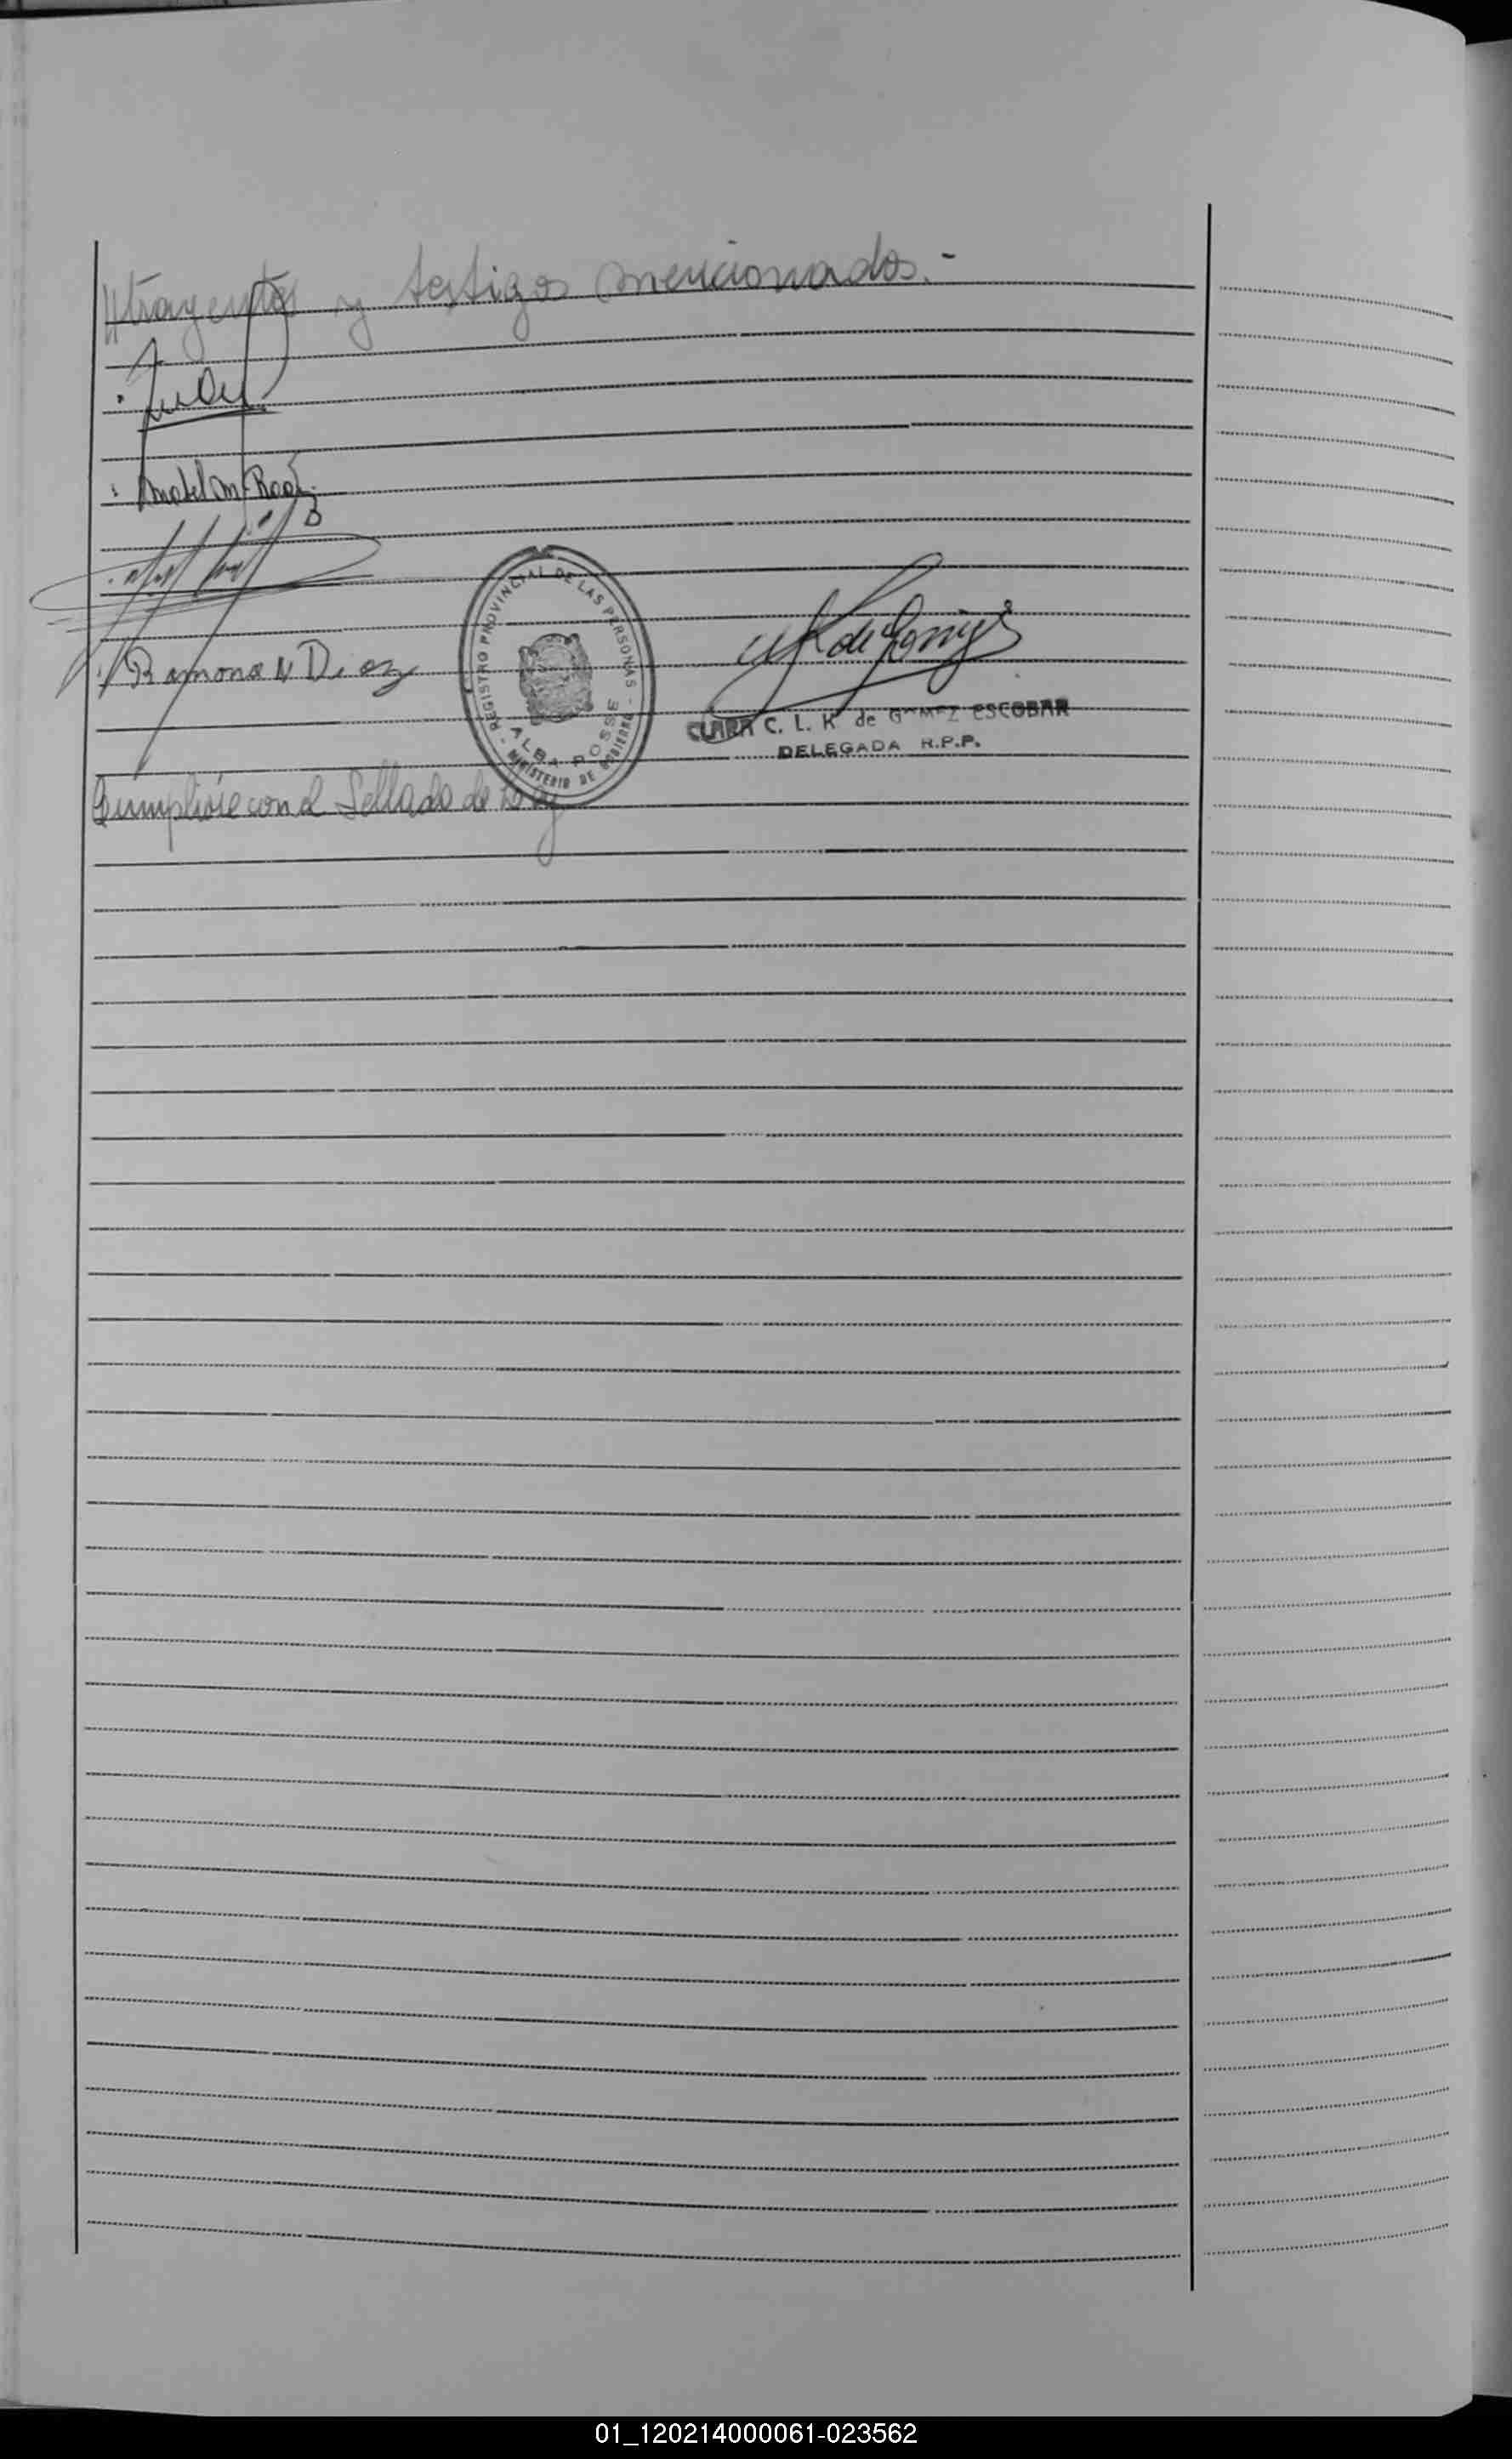 //trayentes y testigos mencionados.-
Ramona N Diaz
REGISTRO PROVINCIAL DE LAS PERSONAS - MINISTERIO DE GOBIERNO -
ALBA POSSE
CLARA C. L. K de GOMEZ ESCOBAR
DELEGADA R.P.P.
Cumplióse con el Sellado de Ley
01_120214000061-023562